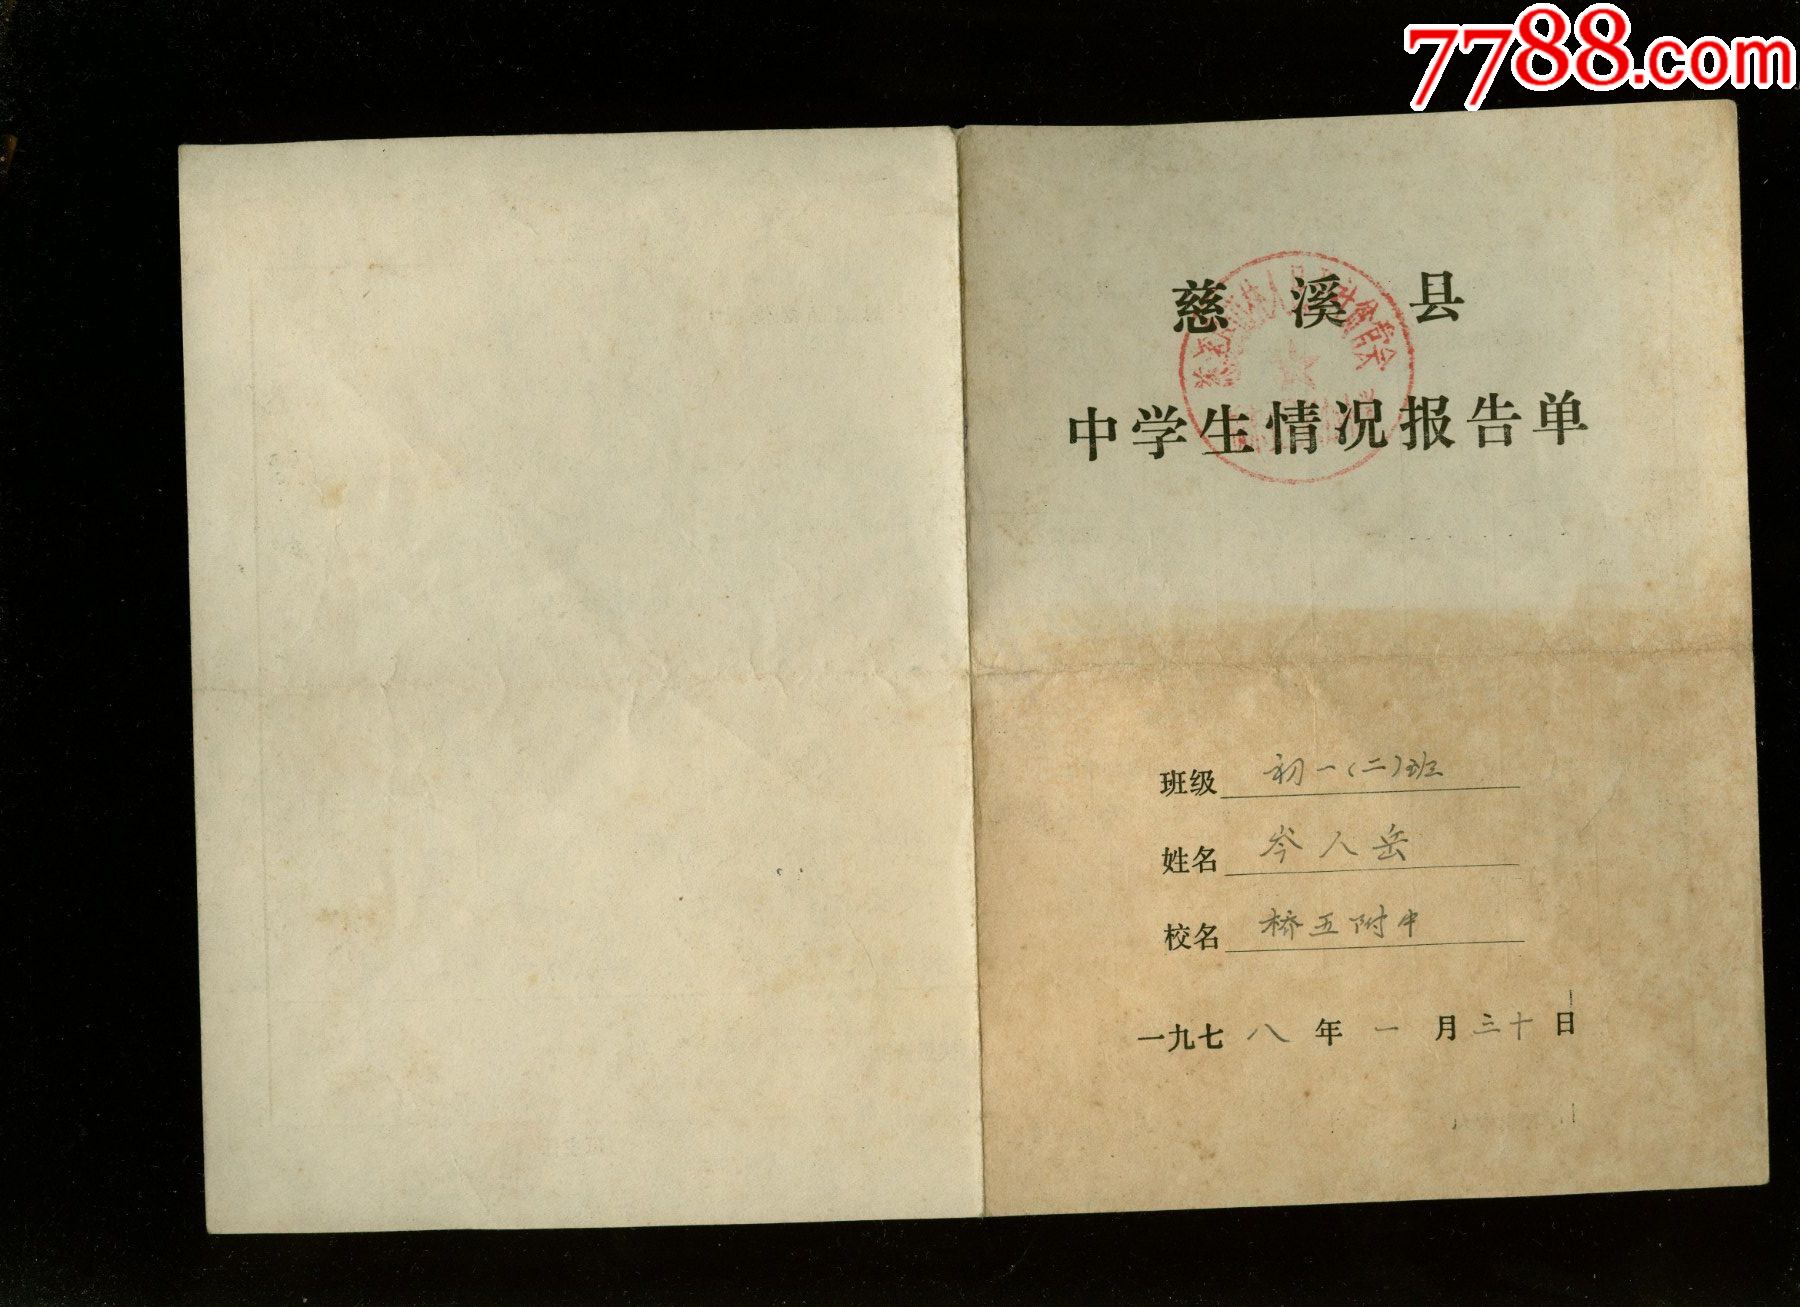 7788.com
慈溪县
中学生情况报告单
班级 初一(二)班
姓名 岑人岳
校名 桥五附中
一九七八年一月三十日